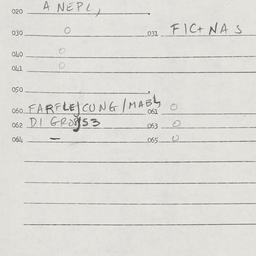 020 A NEPL,
030 O 031 FICT NAS
040 O
041 O
050
060 FARFLE/CUNG/MABL 061 O
062 DI GROSS3 063 O
064 — 065 O